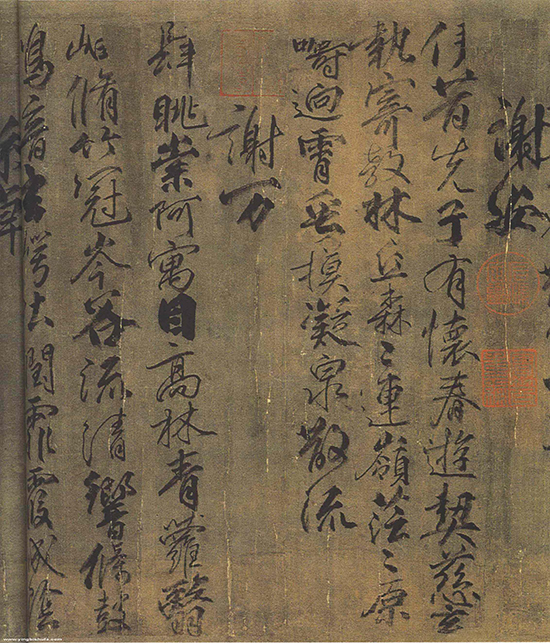 謝安
伊昔先子有懷春遊契慈言
執寄敖林丘森〻連嶺茫〻原
疇迥霄垂凝泉散流
謝万
肆眺崇阿寓目高林青蘿翳
岫脩竹冠岑谷流清響條鼓
鳴音玄崿吐閏霏霧成陰